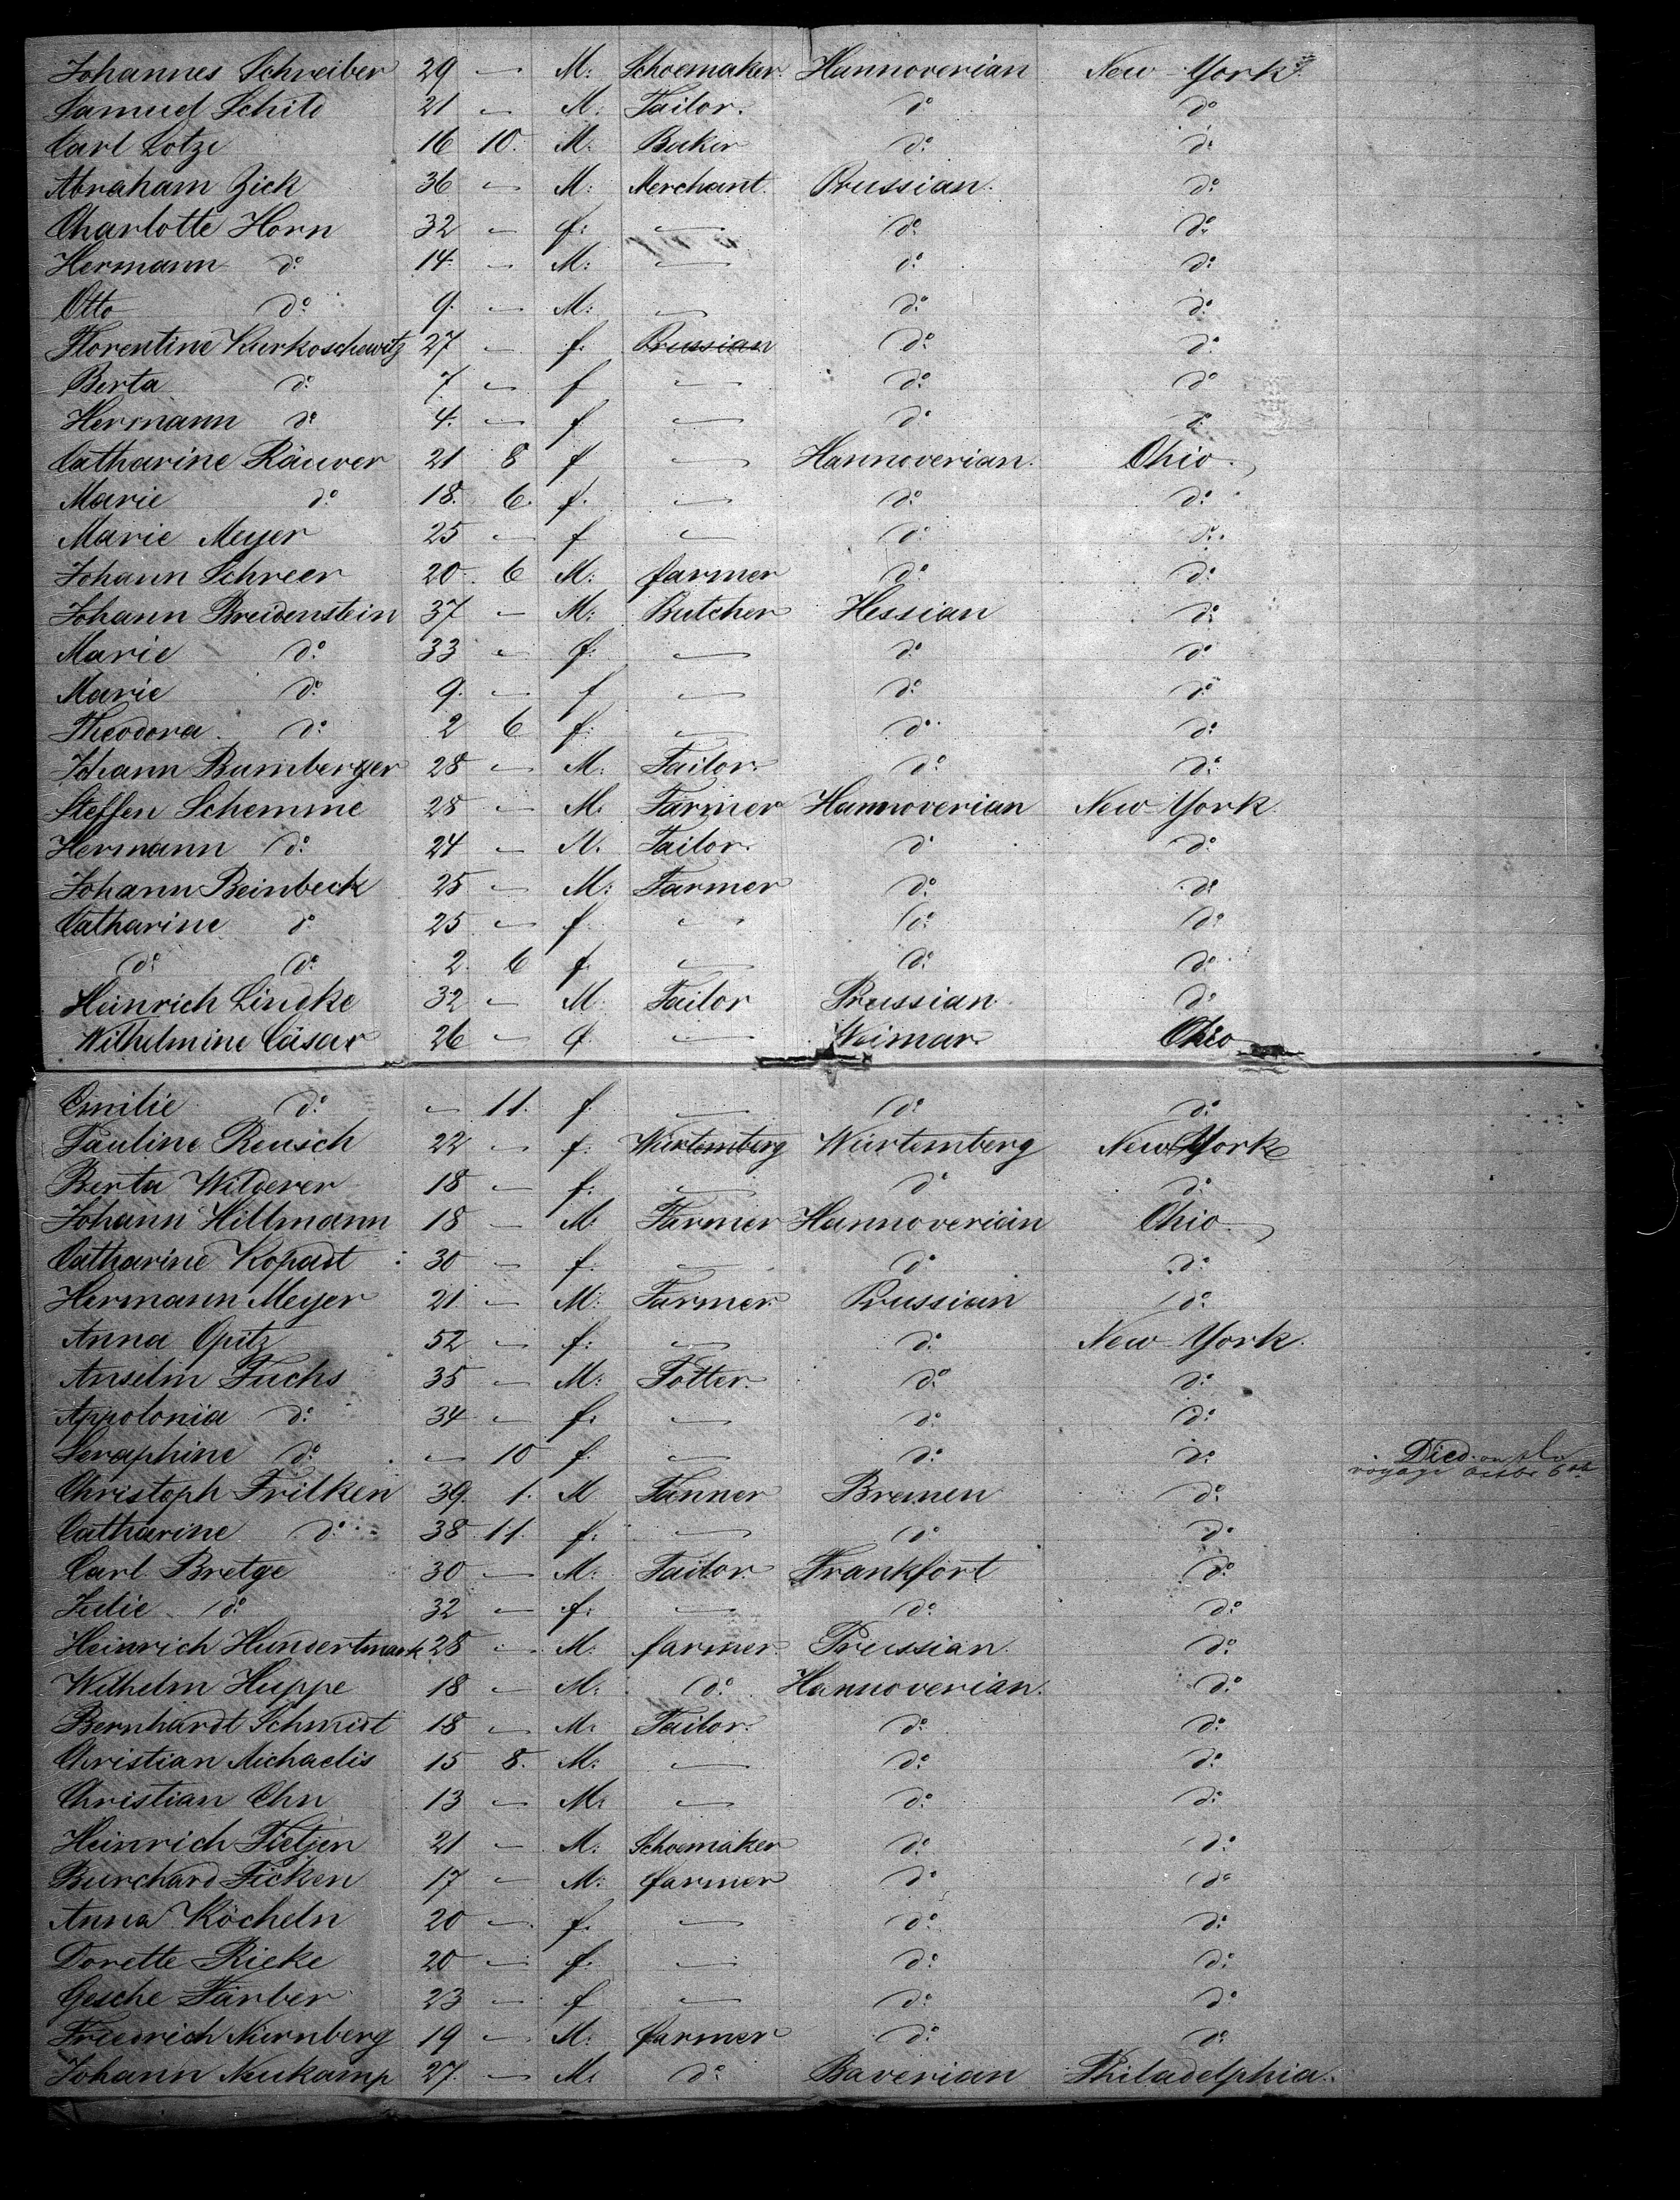 Johannes Schreiber 29 — M: Schoemaker Hannoverian New-York
Samuel Schild 21 — M: Tailor. do do
Carl Lotze 16 10. M. Beker do do
Abraham Zick 36 — M: Merchant Prussian. do
Charlotte Horn 32 — f: — do do
Hermann do 14 — M: — do do
Otto do 9. — M: — do do
Florentine Kurkoschewitz 27 — f. Prussian do do
Berta do 7 — f — do do
Hermann do 4. — f — do do
Catharine Räuver 21 8 f — Hannoverian. Ohio.
Marie do 18. 6. f. — do do
Marie Meyer 25 — f — do do
Johann Schreer 20 6 M: farmer do do
Johann Breidenstein 37 — M: Butcher Hessian do
Marie do 33 — f: — do do
Marie do 9. — f — do do
Theodora do 2 6 f: — do do
Johann Bamberger 28 — M. Tailor. do do
Steffen Schemme 28 — M. Farmer Hannoverian New-York
Hermann do 24 — M. Tailor. do do
Johann Beinbeck 25 — M: Farmer do do
Catharine do 25 — f. — do do
do do 2. 6 f. — do do
Heinrich Lindke 32 — M Tailor Prussian. do
Wilhelmine Cäsar 26 — f. — Weimar Ohio
Emilie do — 11. f. — do do
Pauline Reusch 22 — f. Würtemberg Würtemberg New York
Berta Wilderer 18 — f. — do do
Johann Hillmann 18 — M Farmer Hannoverian Ohio
Catharine Kopast 30 — f. — do do
Hermann Meyer 21 — M: Farmer Prussian do
Anna Opitz 52 — f: — do New-York.
Anselm Fuchs 35 — M: Potter. do do
Appolonia do 34 — f. — do do
Seraphine do — 10 f. — do do Died on the voyage 6th
Christoph Frilken 39. 1. M Tanner Bremen do
Catharine do 38 11. f: — do do
Carl Bretge 30 — M. Tailor Frankfort do
Julie do 32 — f: — do do
Heinrich Hundertmark 28 — M. farmer Prussian. do
Wilhelm Huppe 18 — M. do Hannoverian. do
Bernhardt Schmidt 18 — M. Tailor. do do
Christian Michaelis 15 8. M: — do do
Christian Ehn 13 — M. — do do
Heinrich Tietjen 21 — M. Schoemaker do do
Burchard Ficken 17 — M: farmer do do
Anna Köcheln 20 — f. — do do
Dorette Rieke 20 — f. — do do
Gesche Färber 23 — f — do do
Friedrich Nürnberg 19 — M: farmer do do
Johann Neukamp 27. — M. do Baverian Philadelphia.